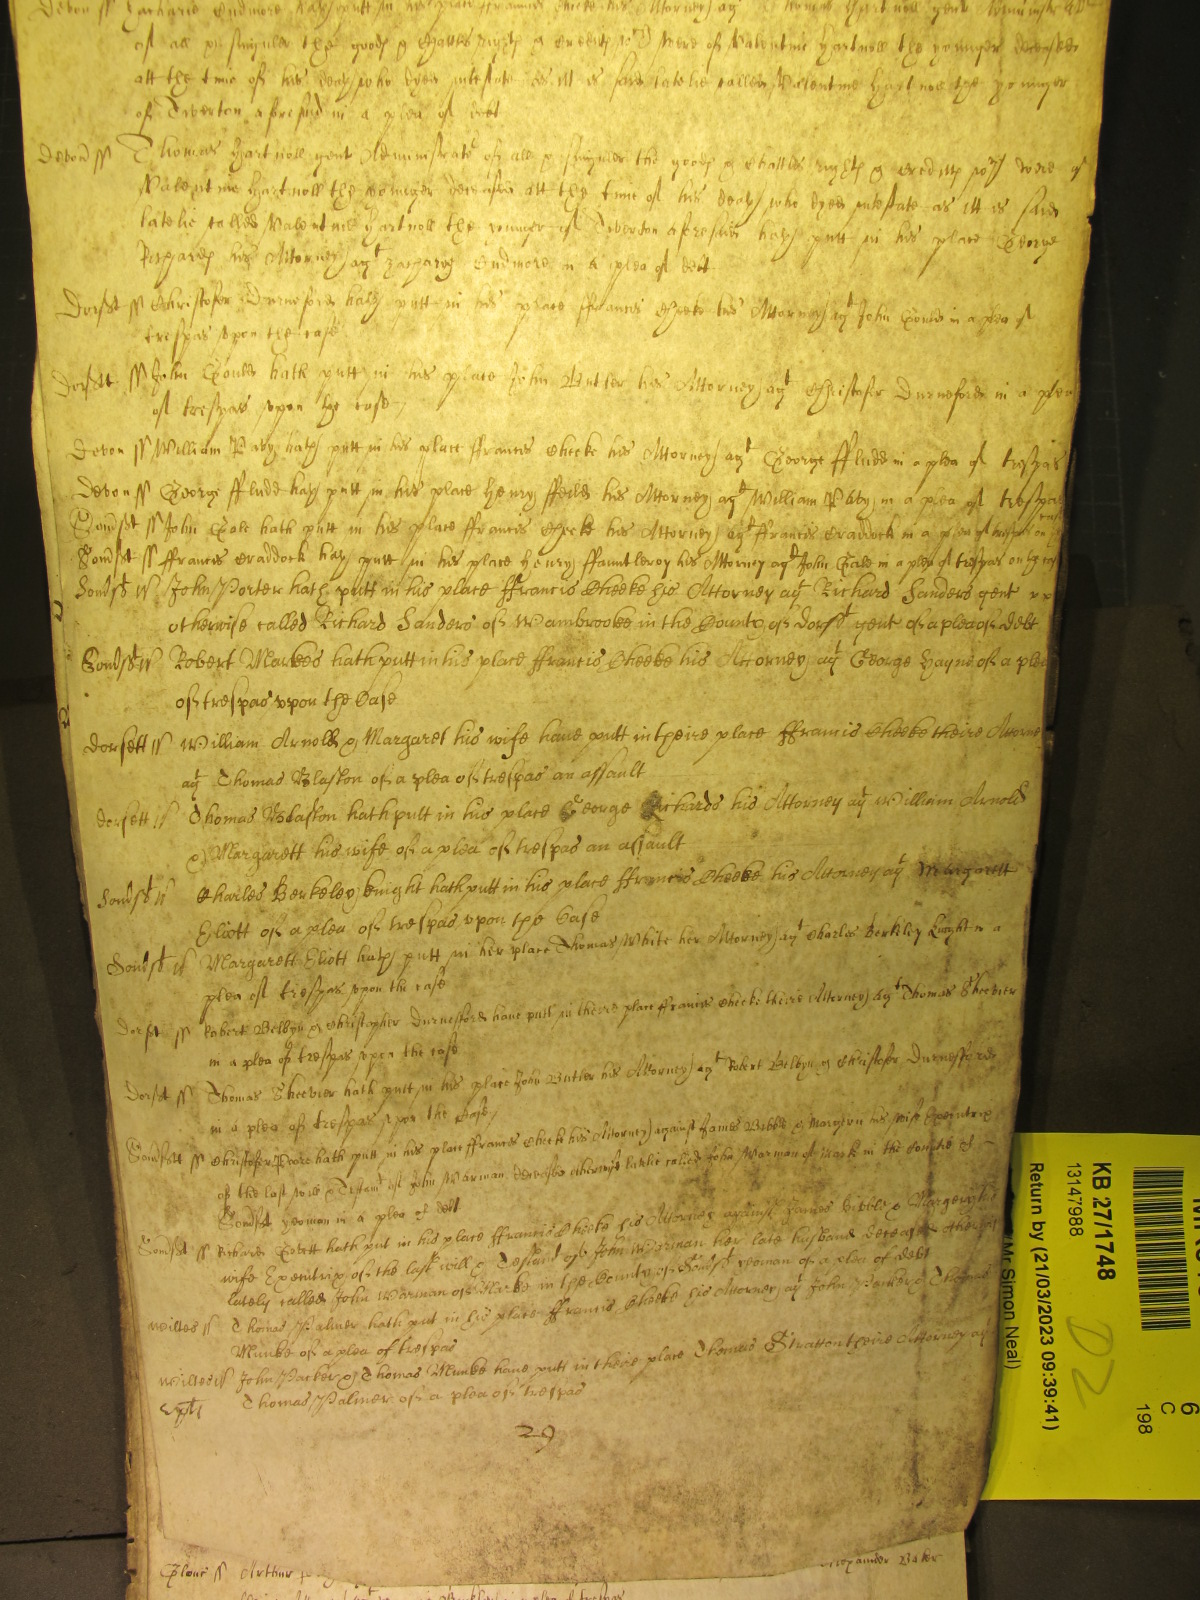 Devon ss Zacharie Endmore hath putt in his place ffrancis Cheeke his Attorney agt Thomas Hartnoll gent Administr
of all & singuler the goods & Chattles rights & Credits wch were of Valentine Hartnoll the younger deceased
att the time of his death who dyed intestate as itt is said latelie called Valentine Hartnoll the younger
of Tiverton aforesaid in a plea of debt
Devon ss Thomas Hartnoll gent Administrator of all & singuler the goods & Chattles rights & Creditts wch were of
Valentine Hartnoll the younger deceased att the time of his death who dyed intestate as itt is said
latelie called Valentine Hartnoll the younger of Tiverton aforesaid hath putt in his place George
Richards his Attorney agt Zachary Endmore in a plea of debt
Dorset ss Christofer Durneford hath putt in his place ffrancis Cheeke his Attorney agt John in a plea of
trespas upon the case
Dorsett ss John hath putt in his place John Butler his Attorney agt Christofer Durneford in a plea
of trespas upon the case
Devon ss William Raby hath putt in his place ffrancis Cheeke his Attorney agt George ffludd in a plea of trespas
Devon ss George ffludd hath putt in his place Henry ffeild his Attorney agt William Raby in a plea of trespas
Somset ss John Gale hath putt in his place ffrancis Cheeke his Attorney agt ffrancis Craddock in a plea of trespas on the
case
Somset ss ffrancis Craddock hath putt in his place Henry ffauntleroy his Attorney agt John Gale in a plea of trespas on the case
Somst ss John Porter hath putt in his place ffrancis Cheeke his Attorney agt Richard Sanders gent
otherwise called Richard Sanders of Wambrooke in the County of Dorst gent of a plea of debt
Somst ss Robert Markes hath putt in his place ffrancis Cheeke his Attorney agt George Hayne of a plea
of trespas upon the Case
Dorsett ss William Arnold & Margaret his wife have putt in theire place ffrancis Cheeke theire Attorne
agt Thomas Blaston of a plea of trespas an assault
Dorsett ss Thomas Blaston hath putt in his place George Richards his Attorney agt William Arnold
& Margarett his wife of a plea of trespas an assault
Somst ss Charles Berkeley knight hath putt in his place ffrancis Cheeke his Attorney agt Margarett
Eliott of a plea of trespas upon the Case
Somst ss Margarett Eliott hath putt in her place Thomas White her Attorney agt Charles Berkley knight in a
plea of trespas upon the case
Dorset ss Robert Belbyn & Christopher Durneford have putt in theire place ffrancis Cheeke theire Attorney agt Thomas Sheevier
in a plea of trespas upon the case
Dorset ss Thomas Sheevier hath putt in his place John Butler his Attorney agt Robert Belbyn & Christofer Durnefford
in a plea of trespas upon the Case
Somsett ss Christofer Poore hath putt in his place ffrancis Cheeke his Attorney against James Bibble & Margery his wife Executrix
of the last will & Testamt of John Warman deceased otherwise latelie called John Warman of Mark in the Countie of
Somset yeoman in a plea of debt
Somset ss Richard hath put in his place ffrancis Cheeke his Attorney against James Bibble & Margery his
wife Executrix of the last will & Testamt of John Warman her late husband deceased otherwise
lately called John Warman of Marke in the County of Somst yeoman of a plea of debt
Wiltes ss Thomas Palmer hath put in his place ffrancis Cheeke his Attorney agt John Packer & Thomas
Munke of a plea of trespas
Wiltes ss John Packer & Thomas Munke have putt in theire place Thomas Stratton theire Attorney agt
Thomas Palmer of a plea of trespas
29
Glouc ss Arthur Alexander Baker
KB 27/1748
13147988
Return by (21/03/2023 09:39:41)
Mr Simon Neal)
D2
6
C
198